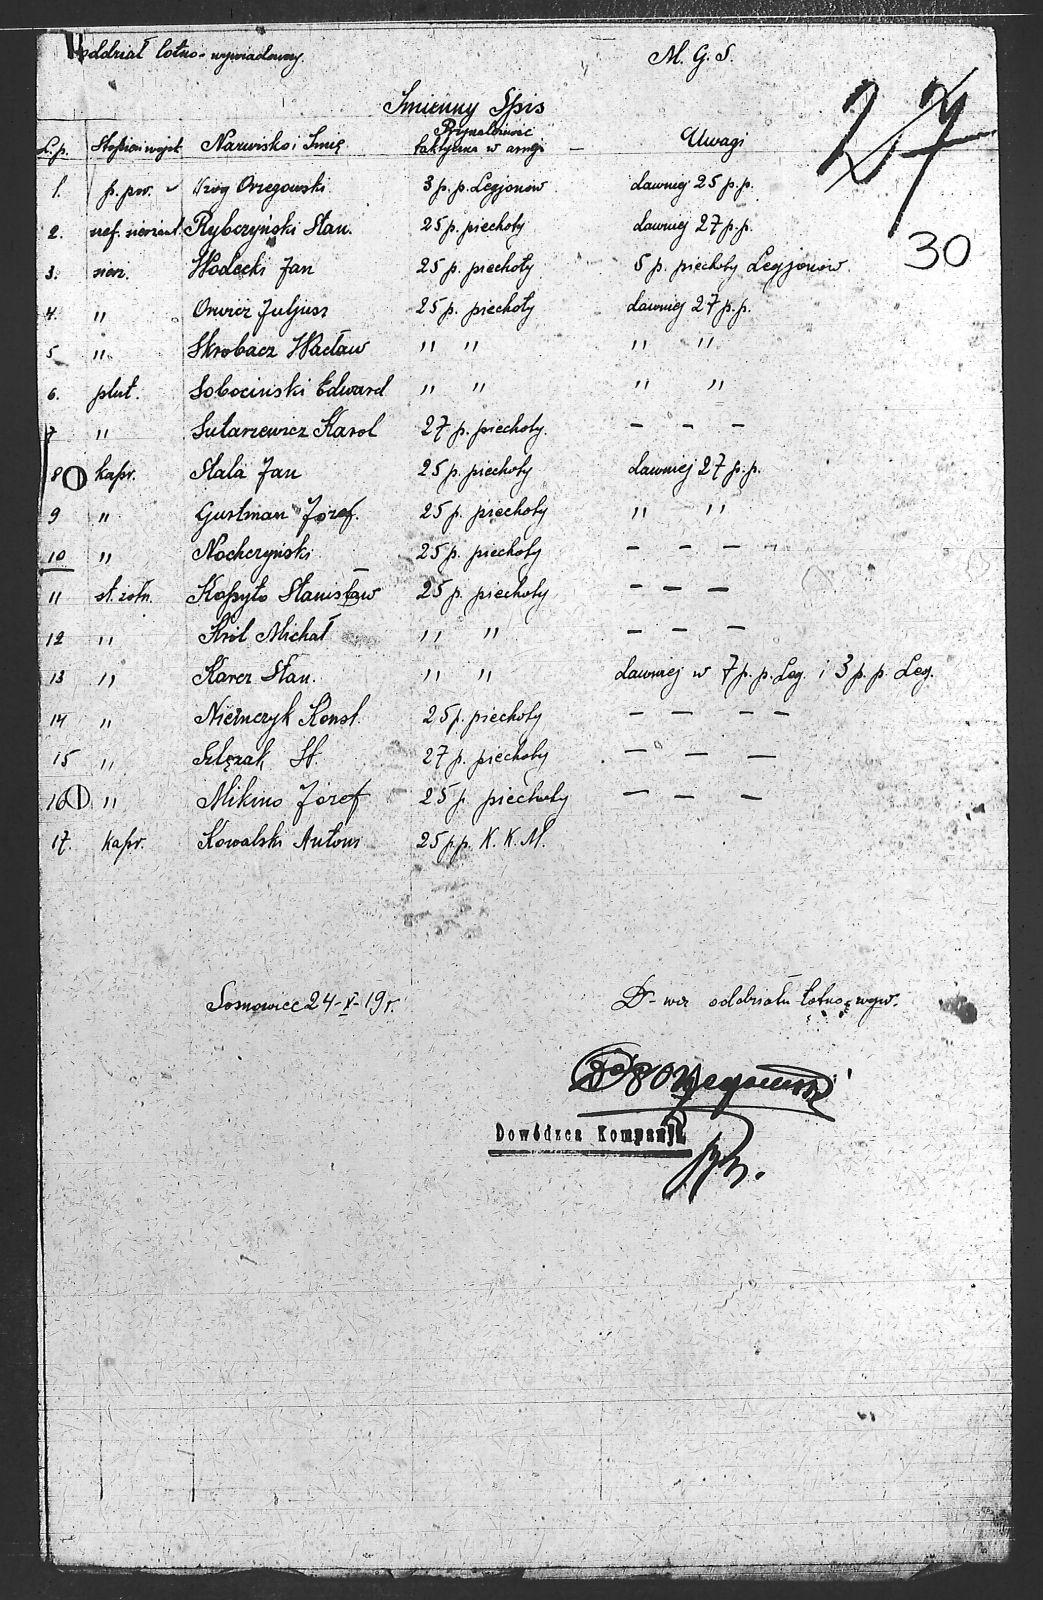 Oddział lotno-wywiadowczy. M. G. S.
27
Imienny Spis
L.p. Stopień wojsk. Nazwisko i Imię Przynależność faktyczna w armji — Uwagi
1. p. por. Orzegowski 3 p. p. Legjonów dawniej 25 p.p.
30
2. sierżant Rybczyński Stan. 25 p. piechoty dawniej 27 p.p.
3. sierż. Wodecki Jan 25 p. piechoty 5 p. piechoty Legjonów.
4. " Orwicz Juljusz 25 p. piechoty dawniej 27 p.p.
5 " Skrobacz Wacław " " " "
6. plut. Sobociński Edward " " " "
7 " Sutarzewicz Karol 27 p. piechoty. — — —
8 kapr. Stala Jan 25 p. piechoty dawniej 27 p.p.
9 " Gustman Józef. 25 p. piechoty " "
10 " Nochczyński 25 p. piechoty — — —
11 st. żołn. Kopyto Stanisław 25 p. piechoty — — —
12 " Król Michał " " — — —
13 " Karcz Stan. " " dawniej w 7 p. p. Leg. i 3 p. p. Leg.
14 " Niemczyk Konst. 25 p. piechoty — — — —
15 " Ślęzak St. 27 p. piechoty — — —
16 " Mikno Józef 25 p. piechoty — — —
17. kapr. Kowalski Antoni 25 p.p. K. K. M.
Sosnowiec 24-V-19 r. D-wca oddziału lotno-wyw.
Orzegowski
Dowódzca Kompanji.